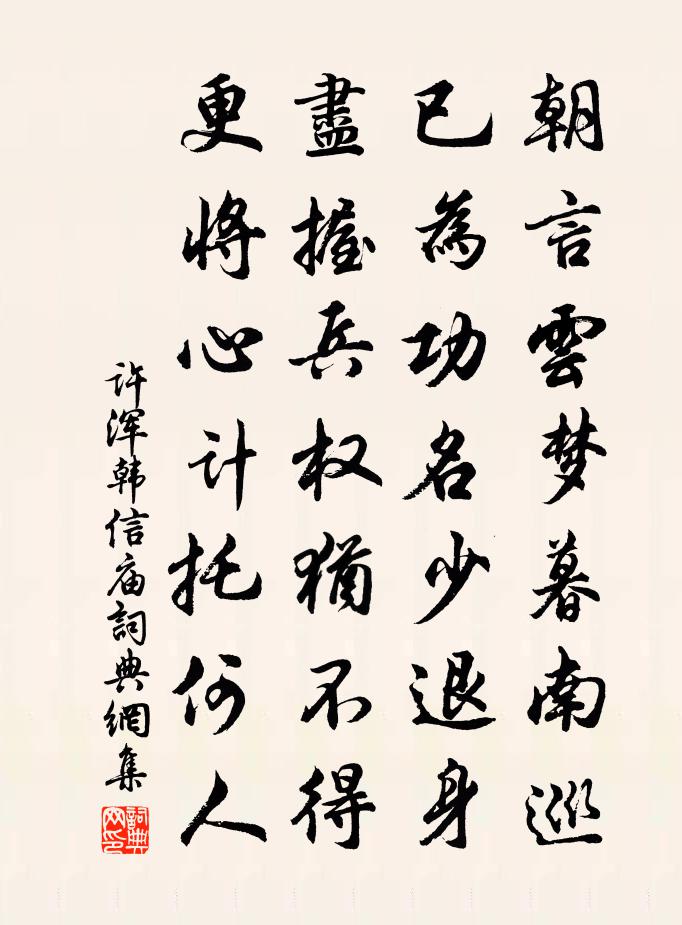 朝言雲梦暮南巡
已為功名少退身
盡握兵权猶不得
更将心计托何人
许浑韩信庙詞典網集
詞典